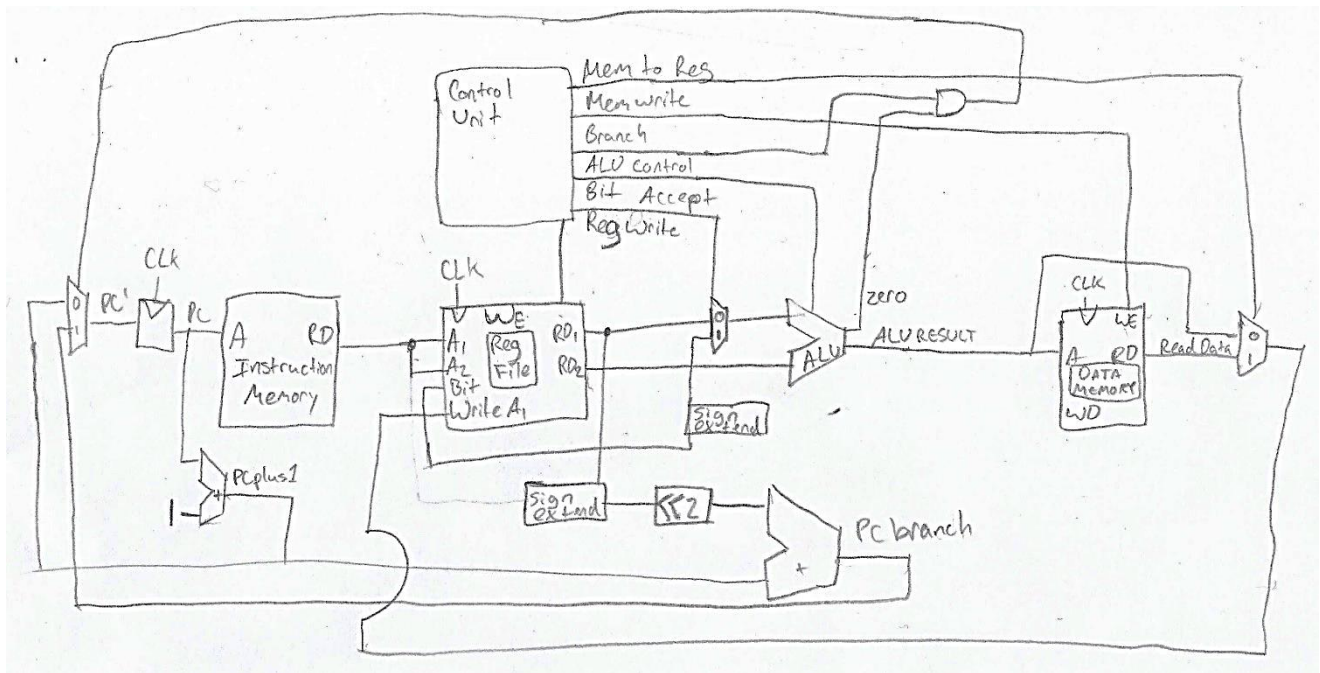 Control
Unit
Mem to Reg
Memwrite
Branch
ALU control
Bit Accept
Reg Write
CLK
PC'
0
1
PC
A
RD
Instruction
Memory
PCplus1
+
1
CLK
WE
A1
A2
Bit
Write A1
Reg
File
RD1
RD2
0
1
ALU
zero
ALU RESULT
Sign
extend
Sign
extend
<<2
+
PC branch
CLK
WE
A
RD
DATA
MEMORY
WD
Read Data
0
1